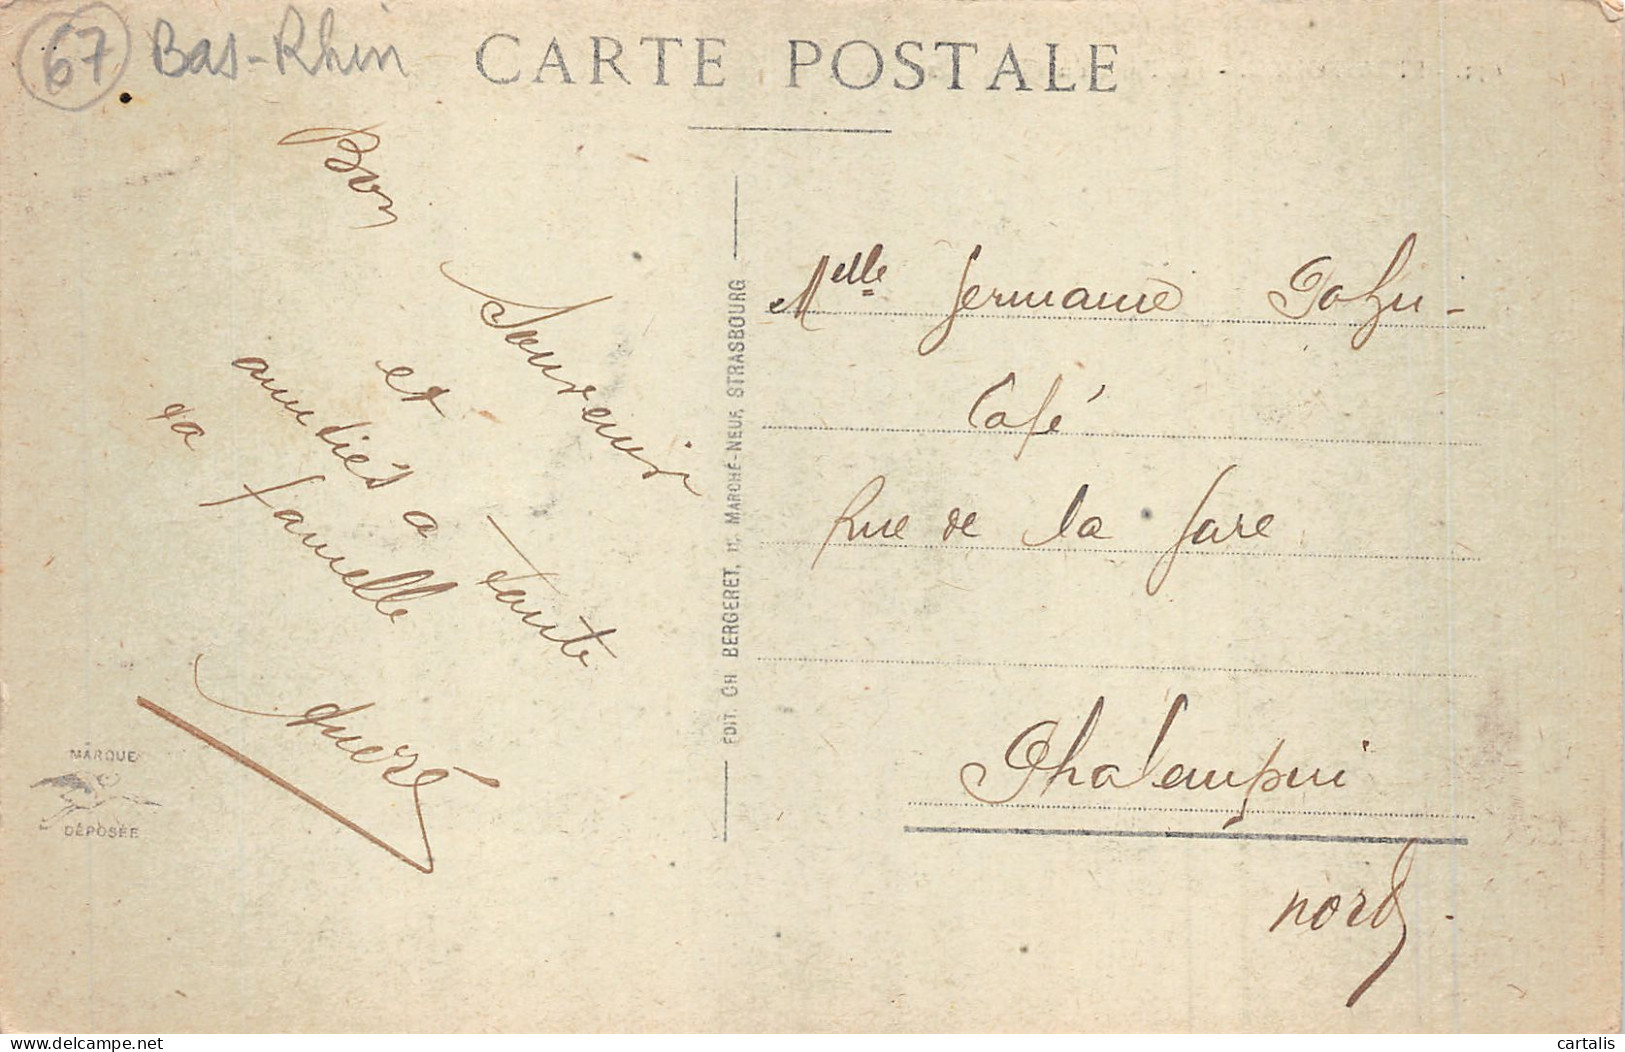 67 Bas-Rhin
CARTE POSTALE
Bon
Souvenir
et
amitiés a toute
ta famille
André
MARQUE
DÉPOSÉE
EDIT. CH BERGERET, 11, MARCHÉ-NEUF, STRASBOURG
Melle Germaine
Café
Rue de la Gare
nord.
delcampe.net
cartalis